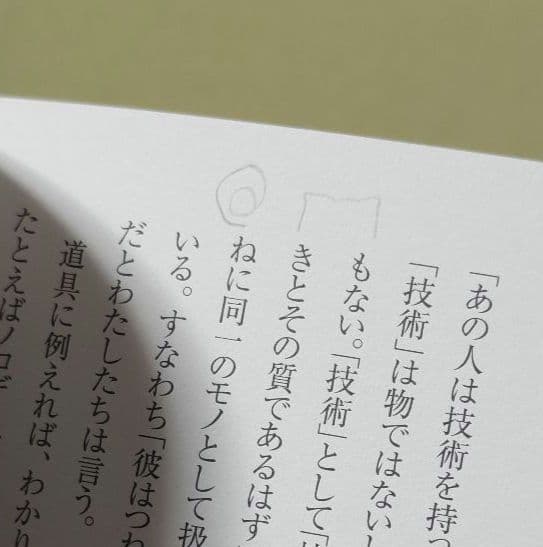 「あの人は技術を持つ
「技術」は物ではないし
もない。「技術」として「
きとその質であるはず
ねに同一のモノとして扱
いる。すなわち「彼はつね
だとわたしたちは言う。
道具に例えれば、わかり
たとえばノコギ